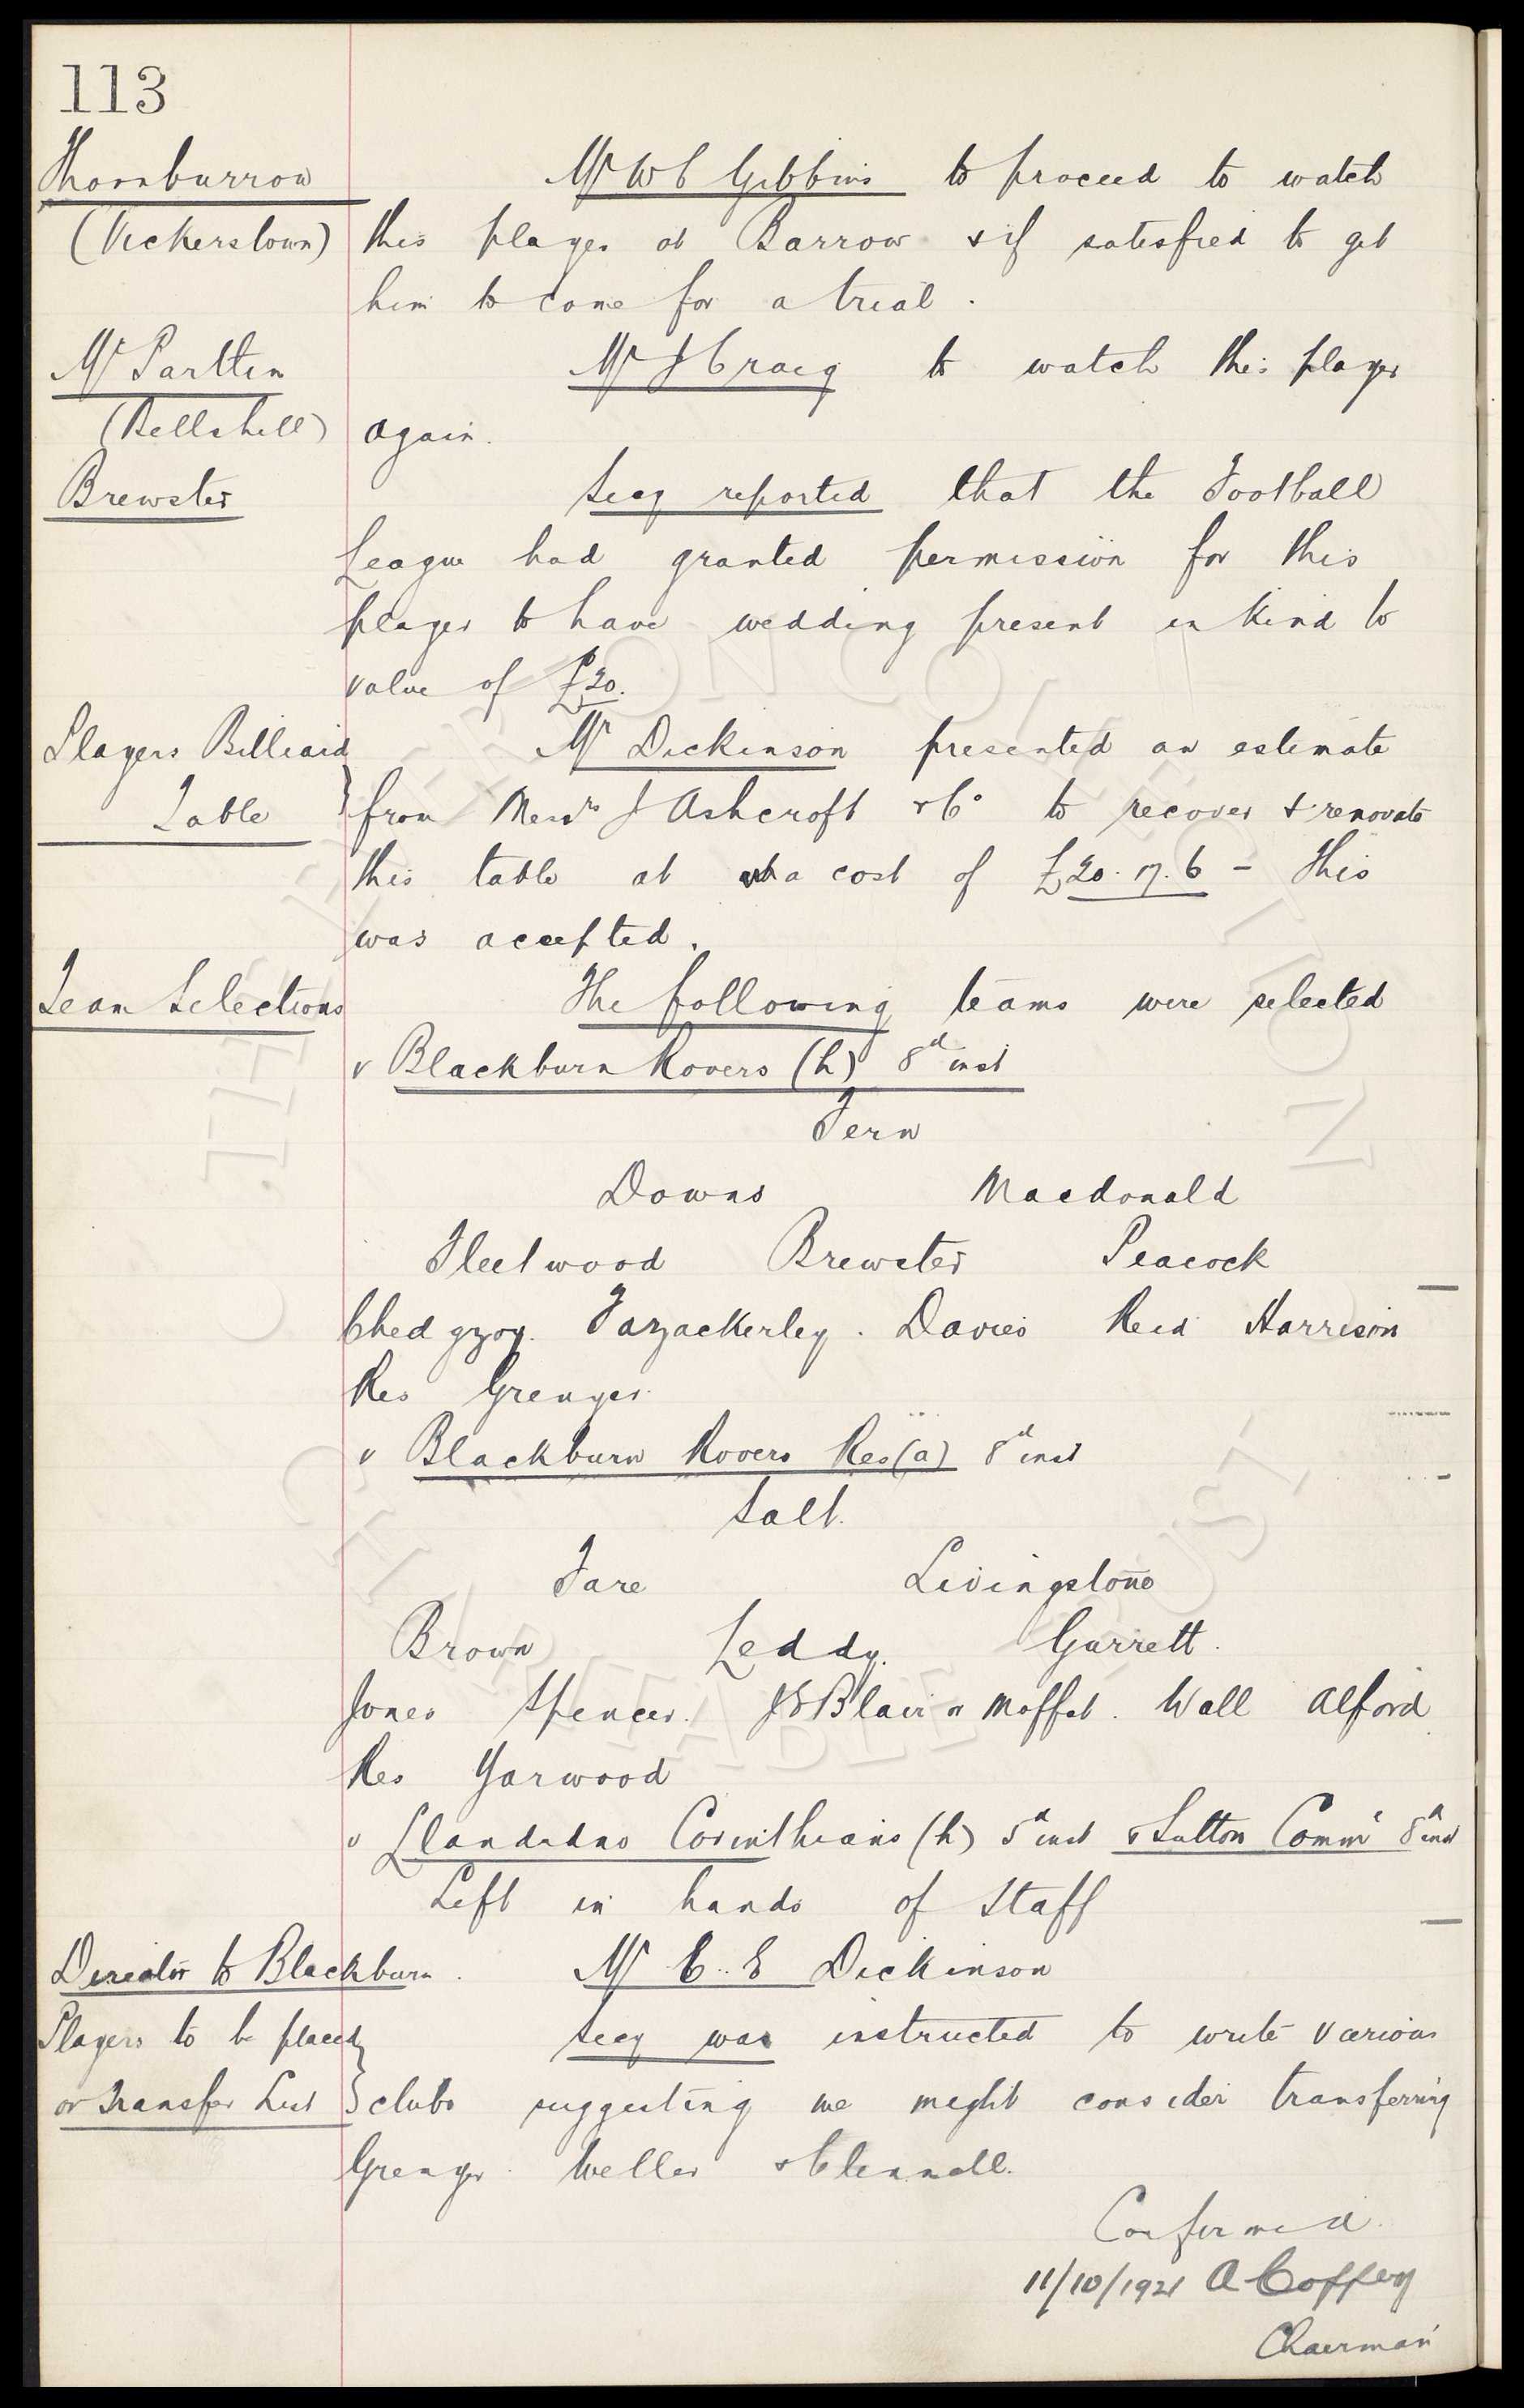 113
Thornburrow Mr W C Gibbins to proceed to watch
(Vickerstown) this player at Barrow & if satisfied to get
him to come for a trial.
Mc Parttin Mr J Craig to watch this player
(Bellshill) again.
Brewster Secy reported that the Football
League had granted permission for this
player to have wedding present in kind to
value of £20.
Players Billiard Mr Dickinson presented an estimate
Table from Messrs J Ashcroft & Co to recover & renovate
this table at a cost of £20.17.6 - This
was accepted.
Team Selections The following teams were selected
v Blackburn Rovers (h) 8th inst
Fern
Downs Macdonald
Fleetwood Brewster Peacock
Chedgzoy. Fazackerley. Davies Reid Harrison
Res Grenyer.
v Blackburn Rovers Res (a) 8th inst
Salt.
Fare Livingstone
Brown Leddy. Garrett.
Jones Spencer. J E Blair or Moffat. Wall Alford
Res Yarwood
v Llandudno Corinthians (h) 5th inst v Sutton Comml 8th inst
Left in hands of Staff
Director to Blackburn. Mr C. E Dickinson
Players to be placed Secy was instructed to write various
on Transfer List clubs suggesting we might consider transferring
Grenyer. Weller & Clennell.
Confirmed.
11/10/1921 A Coffey
Chairman
THE EVERTON COLLECTION CHARITABLE TRUST